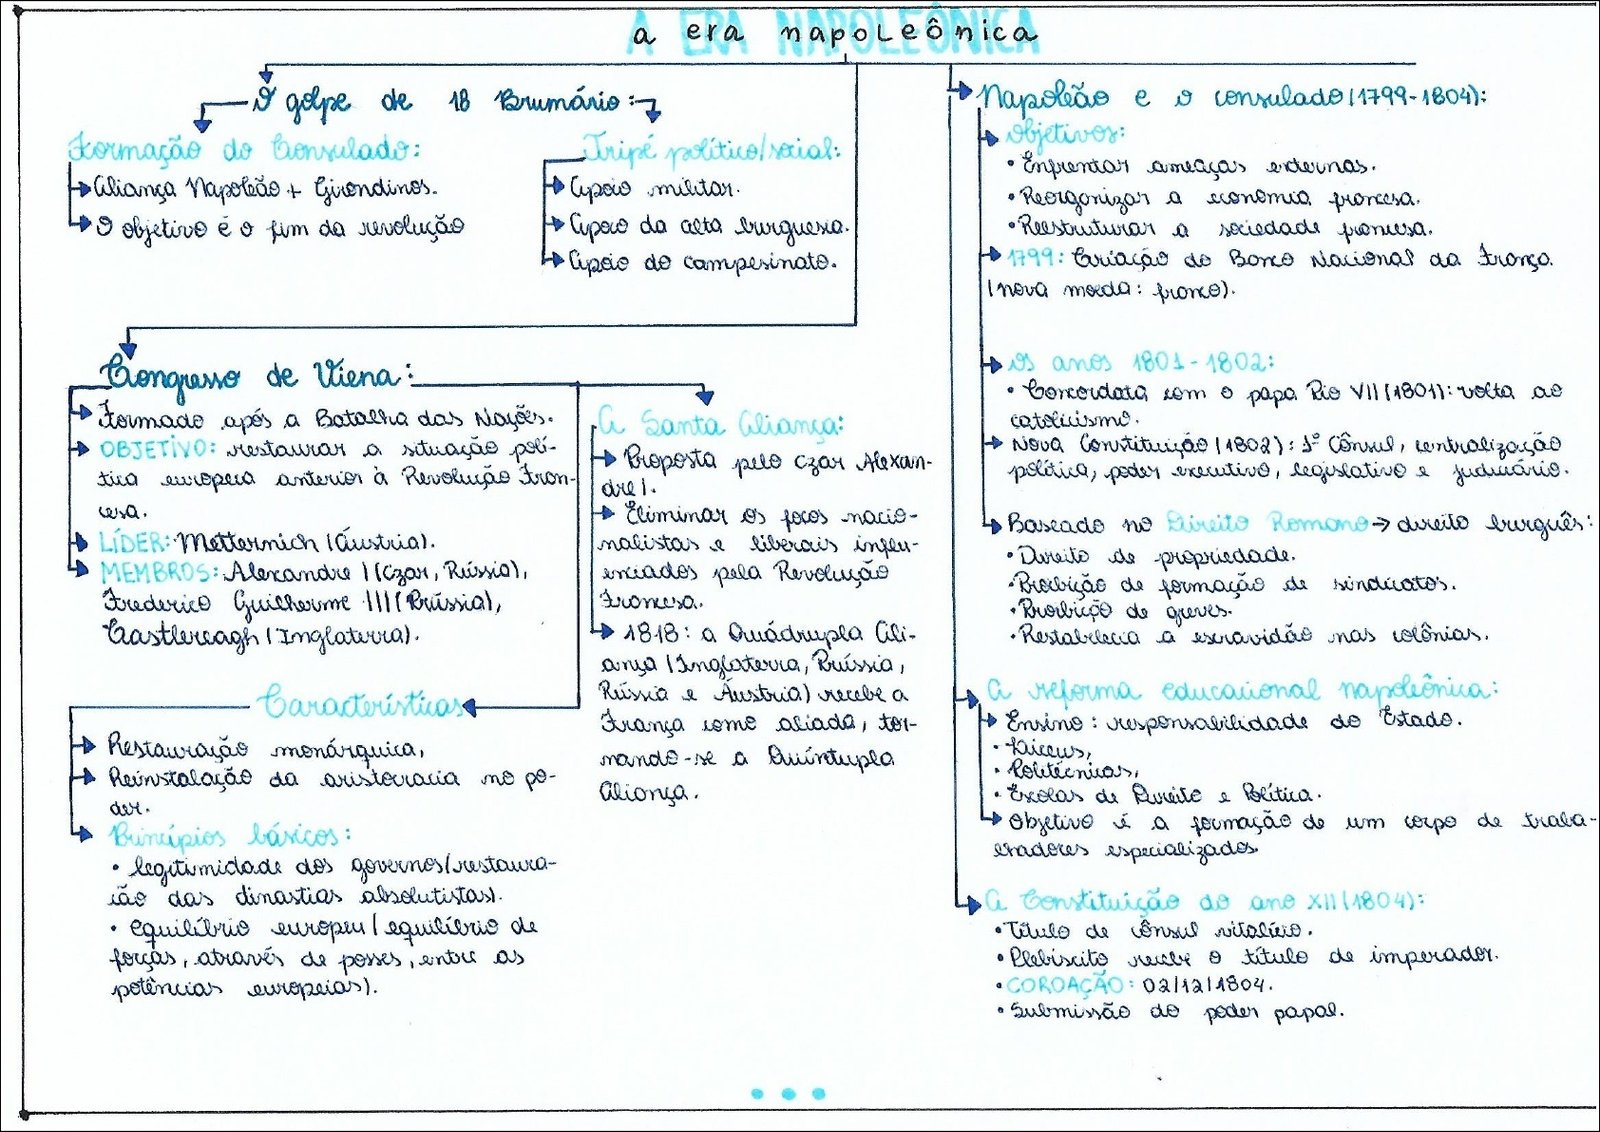 A ERA NAPOLEÔNICA
a era napoleônica
O golpe de 18 Brumário:
Formação do Consulado:
Aliança Napoleão + Girondinos.
O objetivo é o fim da revolução
Tripé político/social:
Apoio militar.
Apoio da alta burguesia.
Apoio do campesinato.
Congresso de Viena:
Formado após a Batalha das Nações.
OBJETIVO: restaurar a situação polí-
tica europeia anterior à Revolução Fran-
cesa.
LÍDER: Metternich (Áustria).
MEMBROS: Alexandre I (czar, Rússia),
Frederico Guilherme III (Prússia),
Castlereagh (Inglaterra).
A Santa Aliança:
Proposta pelo czar Alexan-
dre I.
Eliminar os focos nacio-
nalistas e liberais influ-
enciados pela Revolução
Francesa.
1818: a Quádrupla Ali-
ança (Inglaterra, Prússia,
Rússia e Áustria) recebe a
França como aliada, tor-
nando-se a Quíntupla
Aliança.
Características
Restauração monárquica,
Reinstalação da aristocracia no po-
der.
Princípios básicos:
• legitimidade dos governos (restaura-
ção das dinastias absolutistas).
• equilíbrio europeu (equilíbrio de
forças, através de posses, entre as
potências europeias).
Napoleão e o consulado (1799-1804):
Objetivos:
• Enfrentar ameaças externas.
• Reorganizar a economia francesa.
• Reestruturar a sociedade francesa.
1799: Criação do Banco Nacional da França
(nova moeda: franco).
Os anos 1801-1802:
• Concordata com o papa Pio VII (1801): volta ao
catolicismo.
Nova Constituição (1802): 1º Cônsul, centralização
política, poder executivo, legislativo e judiciário.
Baseado no Direito Romano → direito burguês:
• Direito de propriedade.
• Proibição de formação de sindicatos.
• Proibição de greves.
• Restabelecia a escravidão nas colônias.
A reforma educacional napoleônica:
Ensino: responsabilidade do Estado.
• Liceus,
• Politécnicas,
• Escolas de Direito e Política.
Objetivo é a formação de um corpo de traba-
lhadores especializados.
A Constituição do ano XII (1804):
• Título de cônsul vitalício.
• Plebiscito recebe o título de imperador.
• COROAÇÃO: 02/12/1804.
• Submissão do poder papal.